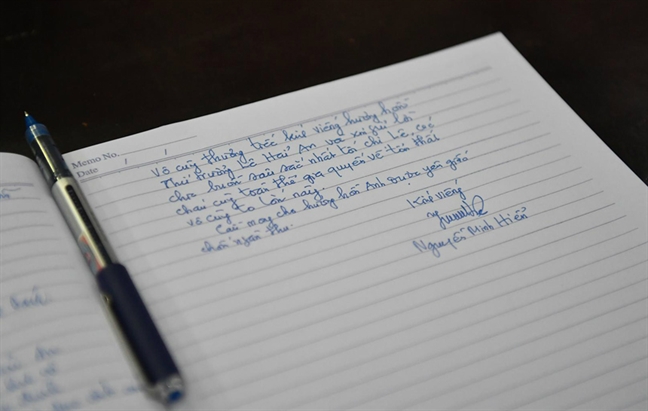 Memo No.
Date / /
Vô cùng thương tiếc kính viếng hương hồn
Thứ trưởng Lê Hải An và xin gửi lời
chia buồn sâu sắc nhất tới chị Lê, các
cháu cùng toàn thể gia quyến về tổn thất
vô cùng to lớn này.
Cầu mong cho hương hồn Anh được yên giấc
chốn ngàn thu.
Kính viếng
Nguyễn Minh Hiển